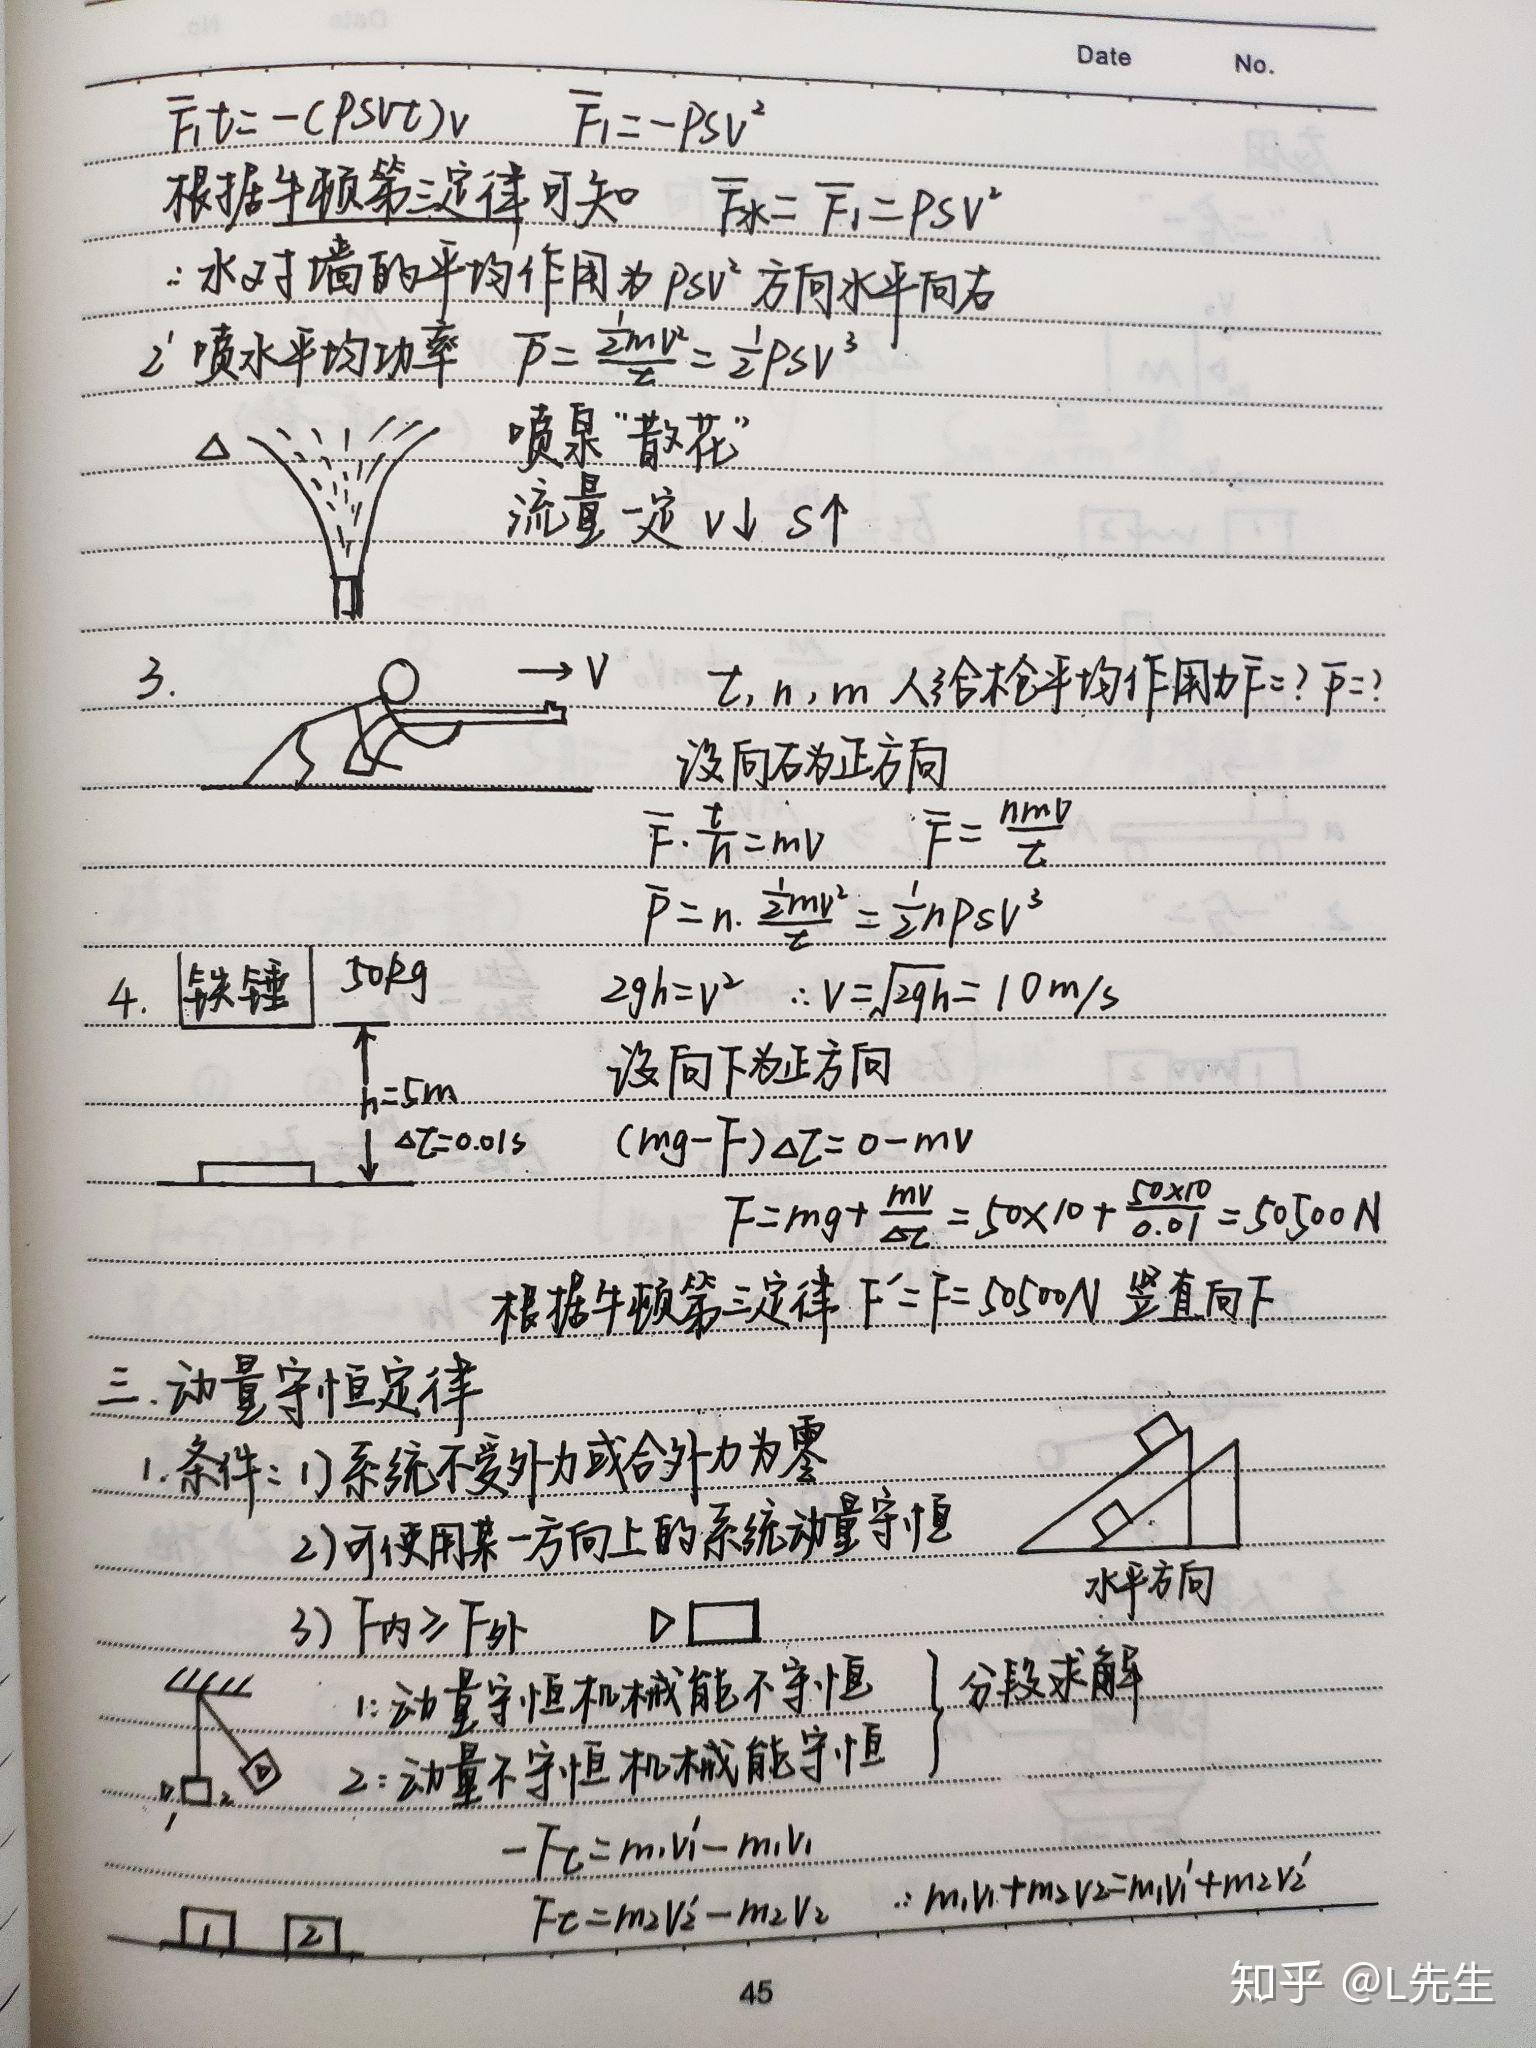 Date No.
F̄₁t=-(ρSVt)v F̄₁=-ρSV²
根据牛顿第三定律可知 F̄水=F̄₁=ρSV²
∴水对墙的平均作用为ρSV²方向水平向右
2' 喷水平均功率 P̄=½mv²/t=½ρSV³
△ 喷泉“散花”
流量一定 V↓ S↑
3. →V t,n,m 人给枪平均作用力F̄=? P̄=?
设向右为正方向
F̄·t/n=mv F̄=nmv/t
P̄=n·½mv²/t=½nρSV³
4. 铁锤 50kg 2gh=v² ∴v=√2gh=10m/s
设向下为正方向
h=5m
Δt=0.01s (mg-F)Δt=0-mv
F=mg+mv/Δt=50×10+50×10/0.01=50500N
根据牛顿第三定律 F'=F=50500N 竖直向下
三.动量守恒定律
1.条件:1)系统不受外力或合外力为零
2)可使用某一方向上的系统动量守恒
水平方向
3)F内≥F外
1:动量守恒机械能不守恒
分段求解
2:动量不守恒机械能守恒
1 2
-Ft=m₁v₁'-m₁v₁
Ft=m₂v₂'-m₂v₂ ∴m₁v₁+m₂v₂=m₁v₁'+m₂v₂'
1 2
45
知乎 @L先生